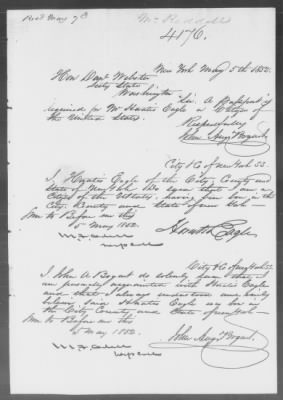 Recd May 7th
4176.
New York May 5th 1852.
Hon Danl Webster
Secty State
Washington
Sir. A Passport is
required for Mr Horatio Eagle a Citizen of
the United States.
Respectfully
John Augt Bogart
City & Co of New York SS.
I, Horatio Eagle of the City County and
State of New York do swear that I am a
Citizen of the U States, having been born in the
City, County and State of New York
Sworn to Before me this
5th May 1852
Horatio Eagle
City & Co New York SS
I John A Bogart do solemnly swear that I
am personally acquainted with Horatio Eagle
and that I always understood and verily
believe said Horatio Eagle was born in
the City County and State of New York
Sworn to Before me this
5 May 1852.
John Augt Bogart